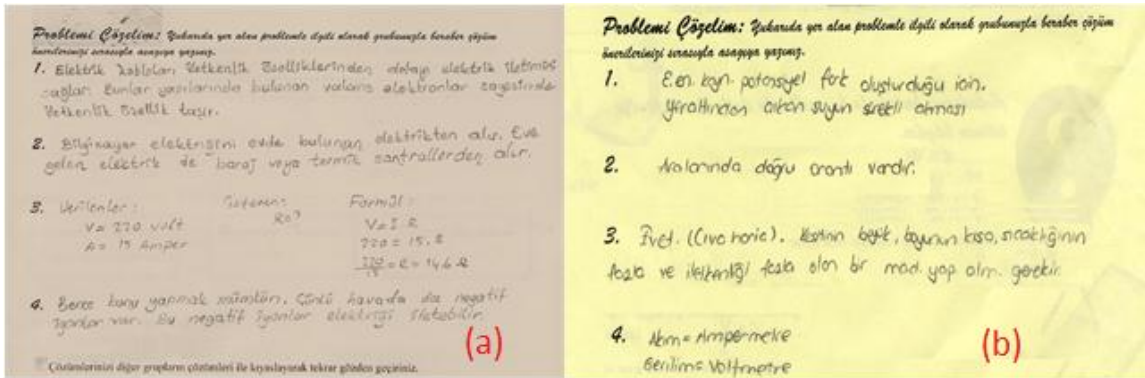 Problemi Çözelim: Yukarıda yer alan problemle ilgili olarak grubunuzla beraber çözüm
önerilerinizi sırasıyla aşağıya yazınız.
1. Elektrik kabloları iletkenlik özelliklerinden dolayı elektrik iletimini
sağlar. Bunlar yapılarında bulunan valans elektronlar sayesinde
iletkenlik özellik taşır.
2. Bilgisayar elektriğini evde bulunan elektrikten alır. Eve
gelen elektrik de baraj veya termik santrallerden alır.
3. Verilenler: İstenen: Formül:
V = 220 volt R=? V=I.R
A = 15 Amper 220 = 15.R
220/15 = R = 14,6 Ω
4. Bence bunu yapmak mümkün. Çünkü havada da negatif
iyonlar var. Bu negatif iyonlar elektriği iletebilir.
Çözümlerinizi diğer grupların çözümleri ile kıyaslayarak tekrar gözden geçiriniz.
(a)
Problemi Çözelim: Yukarıda yer alan problemle ilgili olarak grubunuzla beraber çözüm
önerilerinizi sırasıyla aşağıya yazınız.
1. E.en. kayn. potansiyel fark oluşturduğu için.
Yeraltından çıkan suyun sürekli olması
2. Aralarında doğru orantı vardır.
3. Evet. (Cıva hariç). Kesitinin büyük, boyunun kısa, sıcaklığının
fazla ve iletkenliği fazla olan bir mad. yap olm. gerekir.
4. Akım = Ampermetre
Gerilim = Voltmetre
(b)